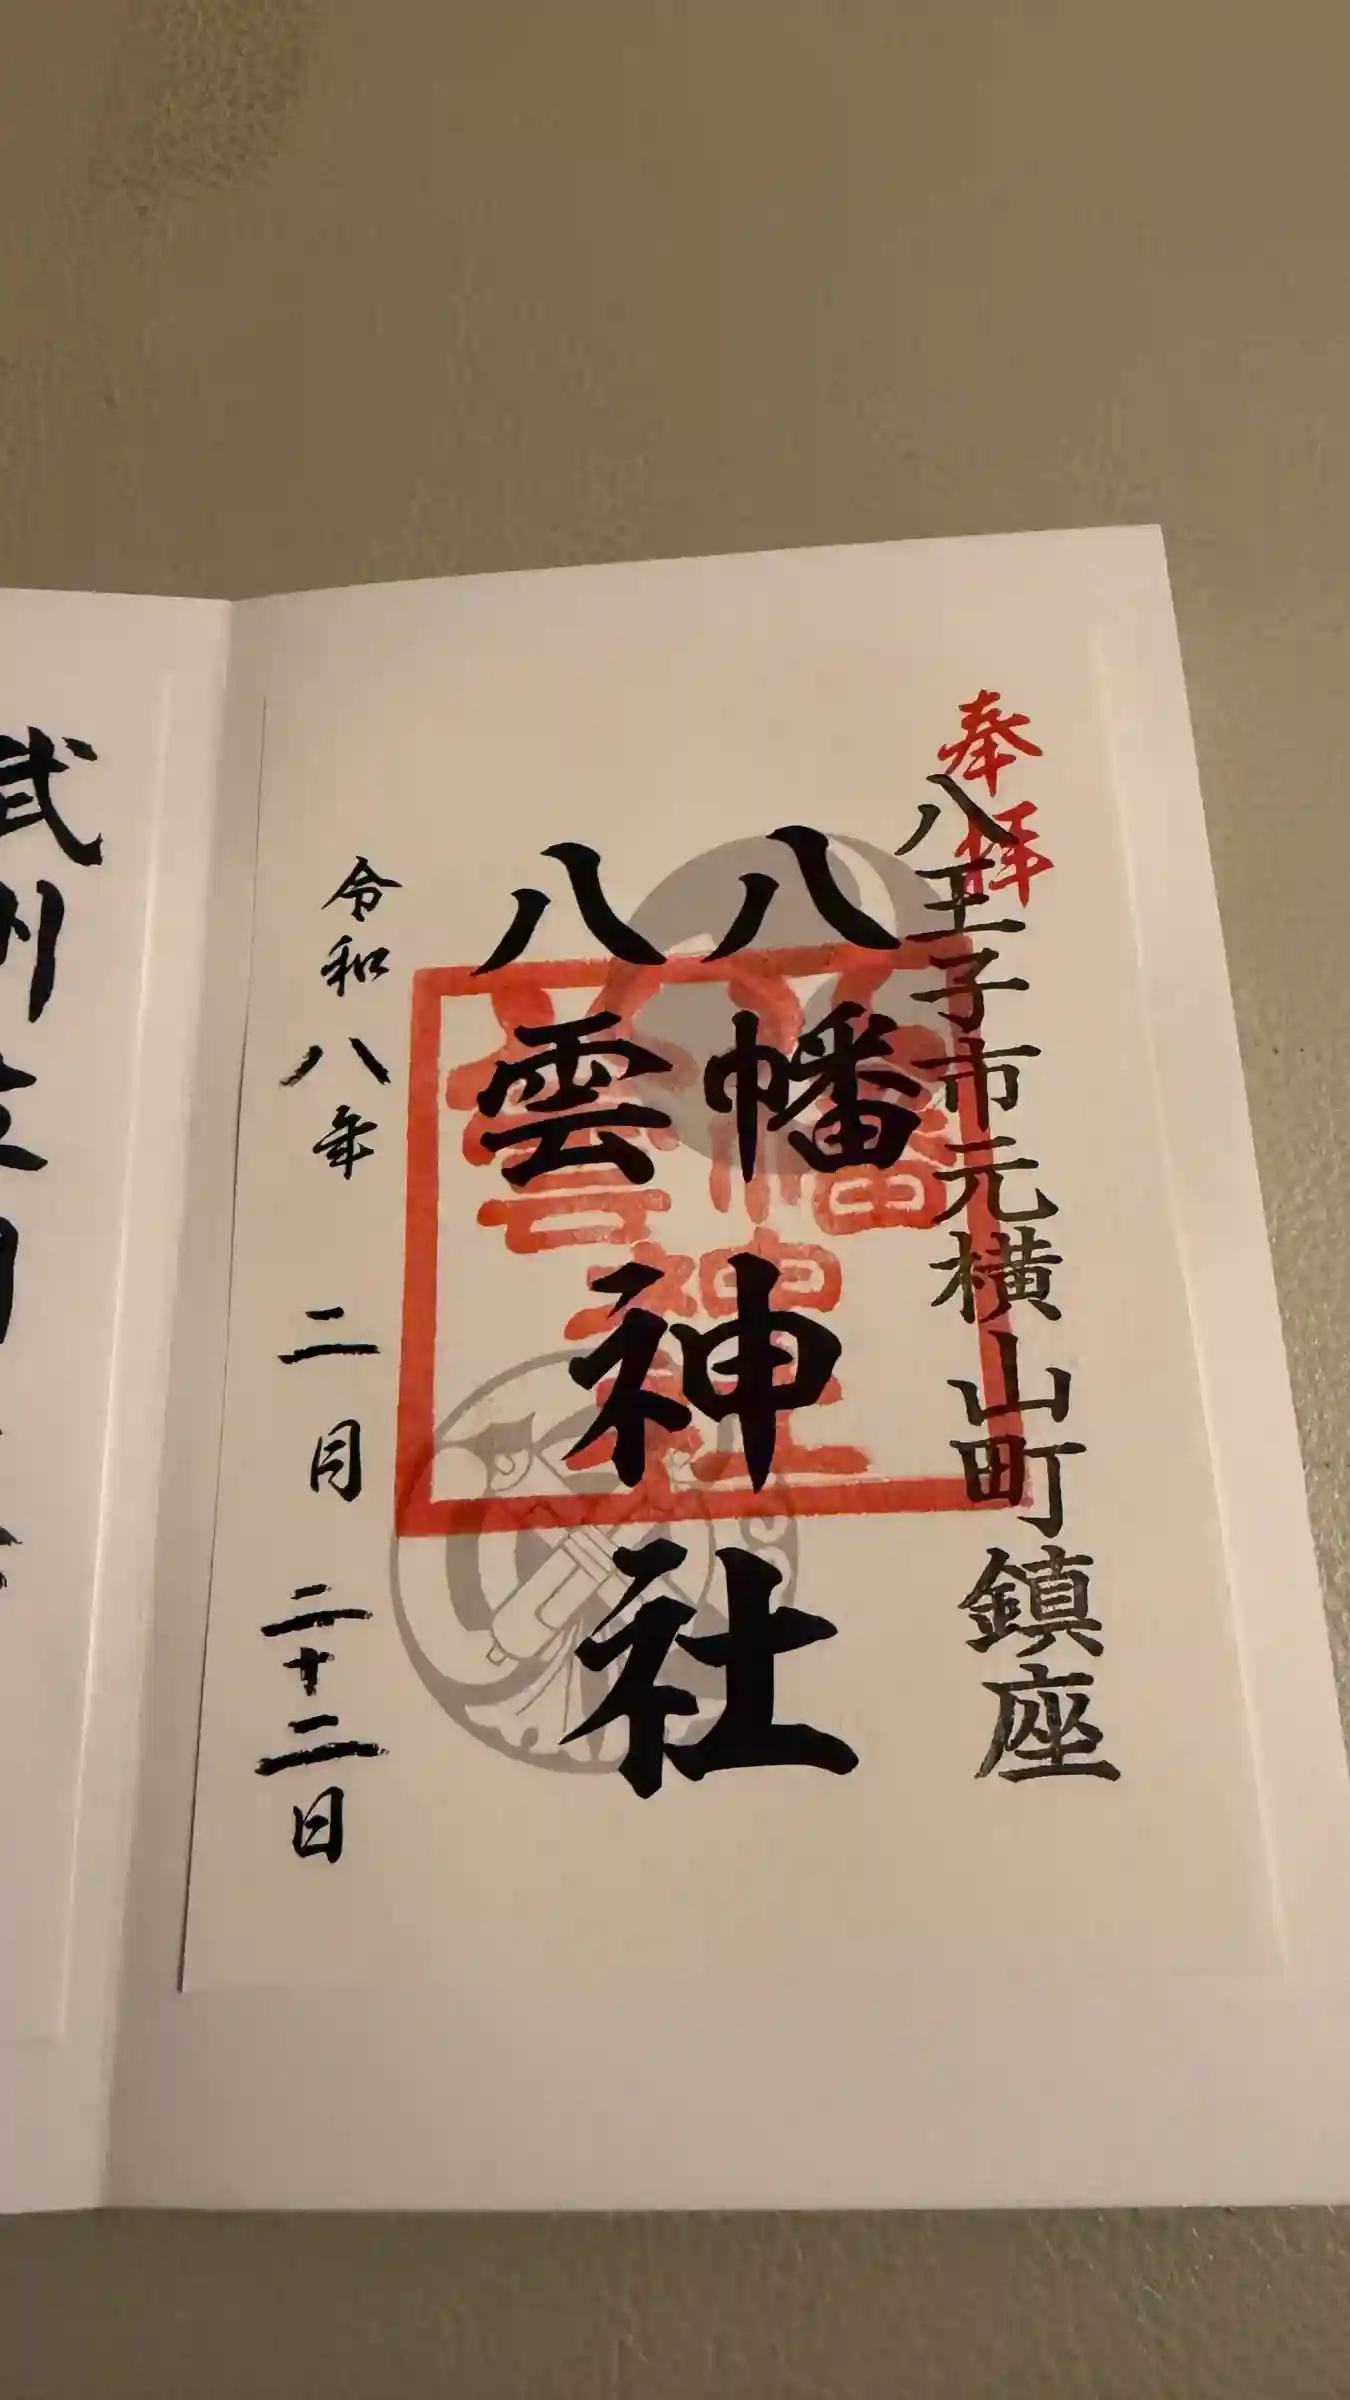 奉拝
八王子市元横山町鎮座
八幡
八雲
神社
八幡
八雲
神社
令和八年 二月 二十二日
武州